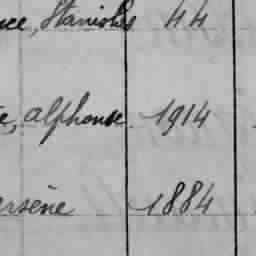 nce, Stanislas 44
e, Alphonse. 1914
Arsène 1884